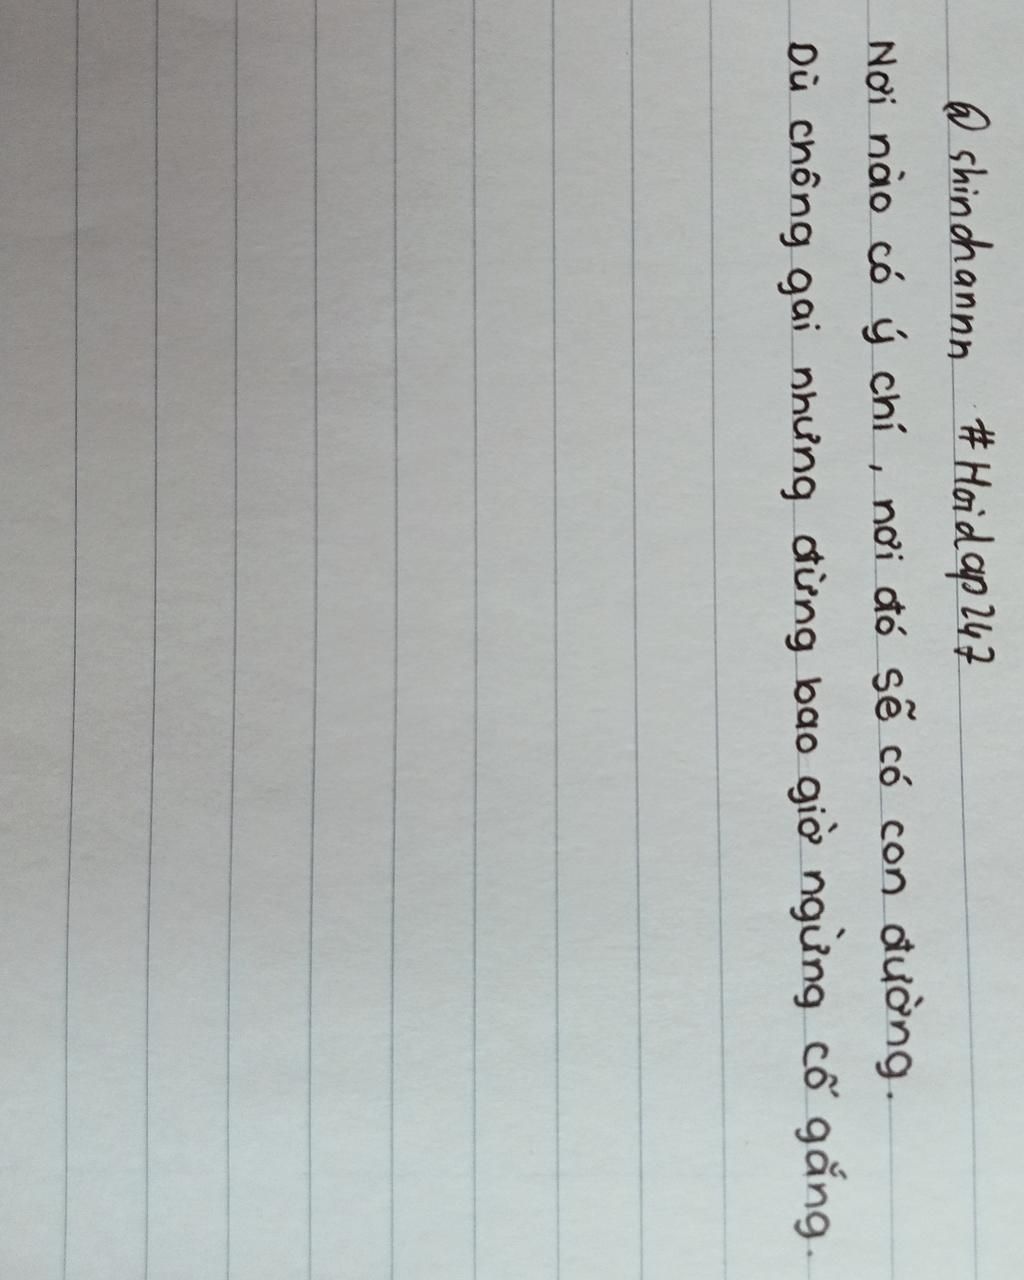 @shinchannn #Hoidap247
Nơi nào có ý chí, nơi đó sẽ có con đường.
Dù chông gai nhưng đừng bao giờ ngừng cố gắng.